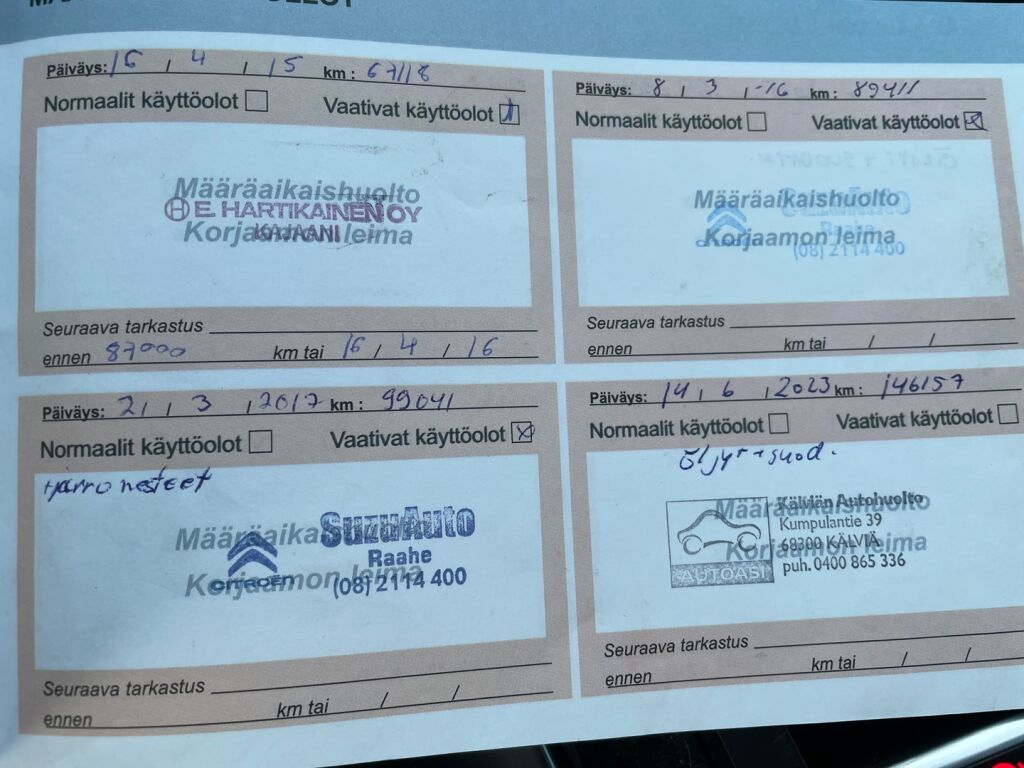 Päiväys: 16 / 4 / 15 km: 67118
Normaalit käyttöolot Vaativat käyttöolot
Määräaikaishuolto
H E. HARTIKAINEN OY
KAJAANI
Korjaamon leima
Seuraava tarkastus
ennen 87000 km tai 16 / 4 / 16
Päiväys: 8 / 3 / -16 km: 89411
Normaalit käyttöolot Vaativat käyttöolot
Määräaikaishuolto
SuzuAuto
Raahe
Korjaamon leima
(08) 2114 400
Seuraava tarkastus
ennen km tai / /
Päiväys: 21 / 3 / 2017 km: 99041
Normaalit käyttöolot Vaativat käyttöolot
Jarrunesteet
Määräaikaishuolto
SuzuAuto
Raahe
CITROËN
Korjaamon leima
(08) 2114 400
Seuraava tarkastus
ennen km tai / /
Päiväys: 14 / 6 / 2023 km: 146157
Normaalit käyttöolot Vaativat käyttöolot
Öljyt + suod.
Määräaikaishuolto
Kälviän Autohuolto
Kumpulantie 39
68300 KÄLVIÄ
puh. 0400 865 336
AUTOASI
Korjaamon leima
Seuraava tarkastus
ennen km tai / /